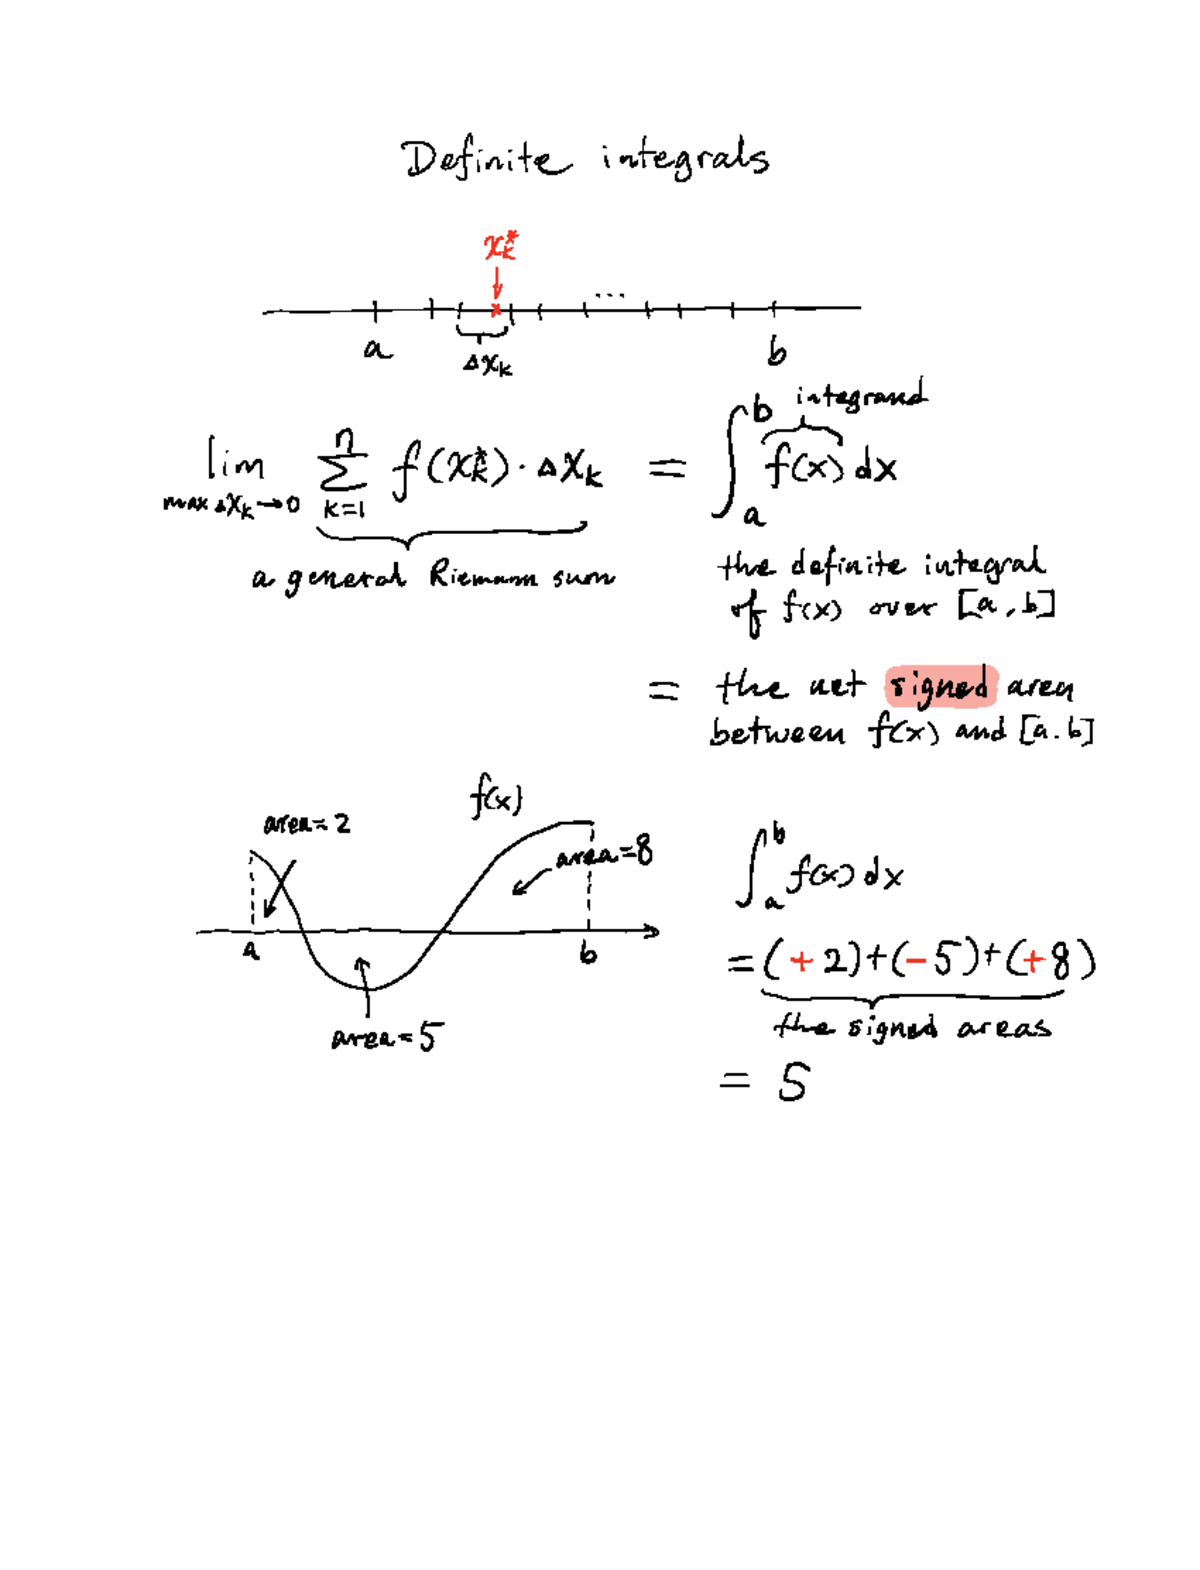 Definite integrals
x*k
...
a
Δxk
b
lim max Δxk→0 n Σ k=1 f(x*k)·Δxk = ∫ b a f(x) dx
integrand
a general Riemann sum
the definite integral
of f(x) over [a, b]
= the net signed area
between f(x) and [a.b]
f(x)
area=2
area=8
a
b
area=5
∫ b a f(x) dx
=(+2)+(-5)+(+8)
the signed areas
= 5